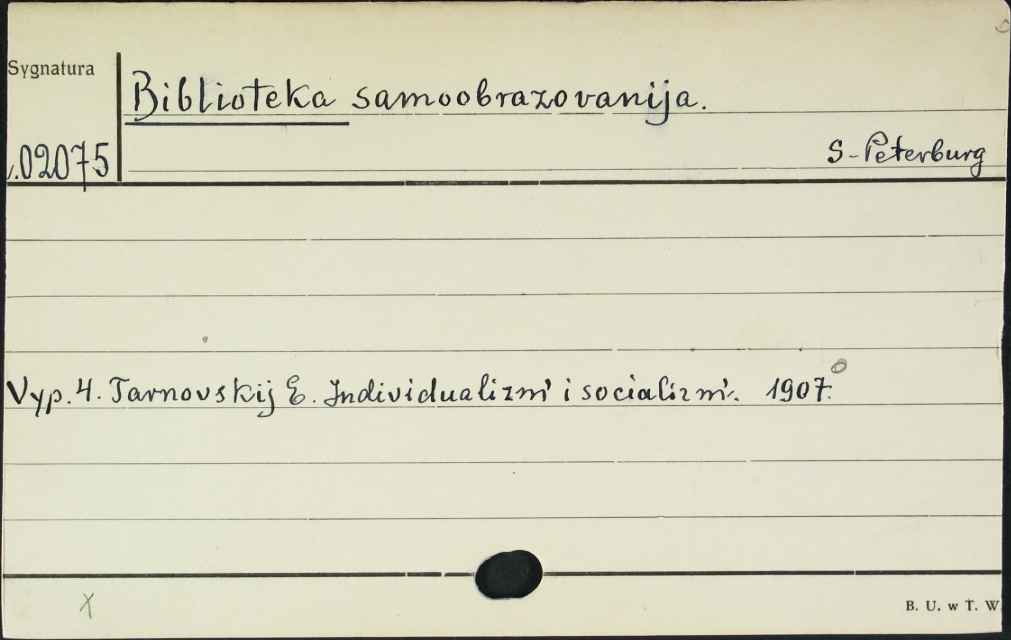 Sygnatura
Biblioteka samoobrazovanija.
02075
S-Peterburg
Vyp. 4. Tarnovskij E. Individualizm' i socializm'. 1907.
X
B. U. w T. W